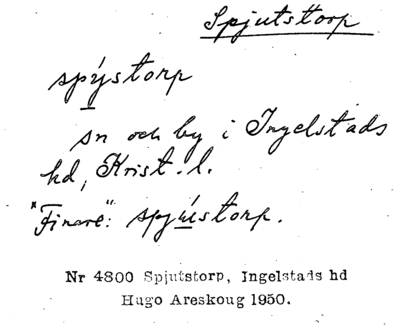 Spjutstorp
spýstorp
sn och by i Ingelstads
hd, Krist. l.
"Finare": spjústorp.
Nr 4800 Spjutstorp, Ingelstads hd
Hugo Areskoug 1950.